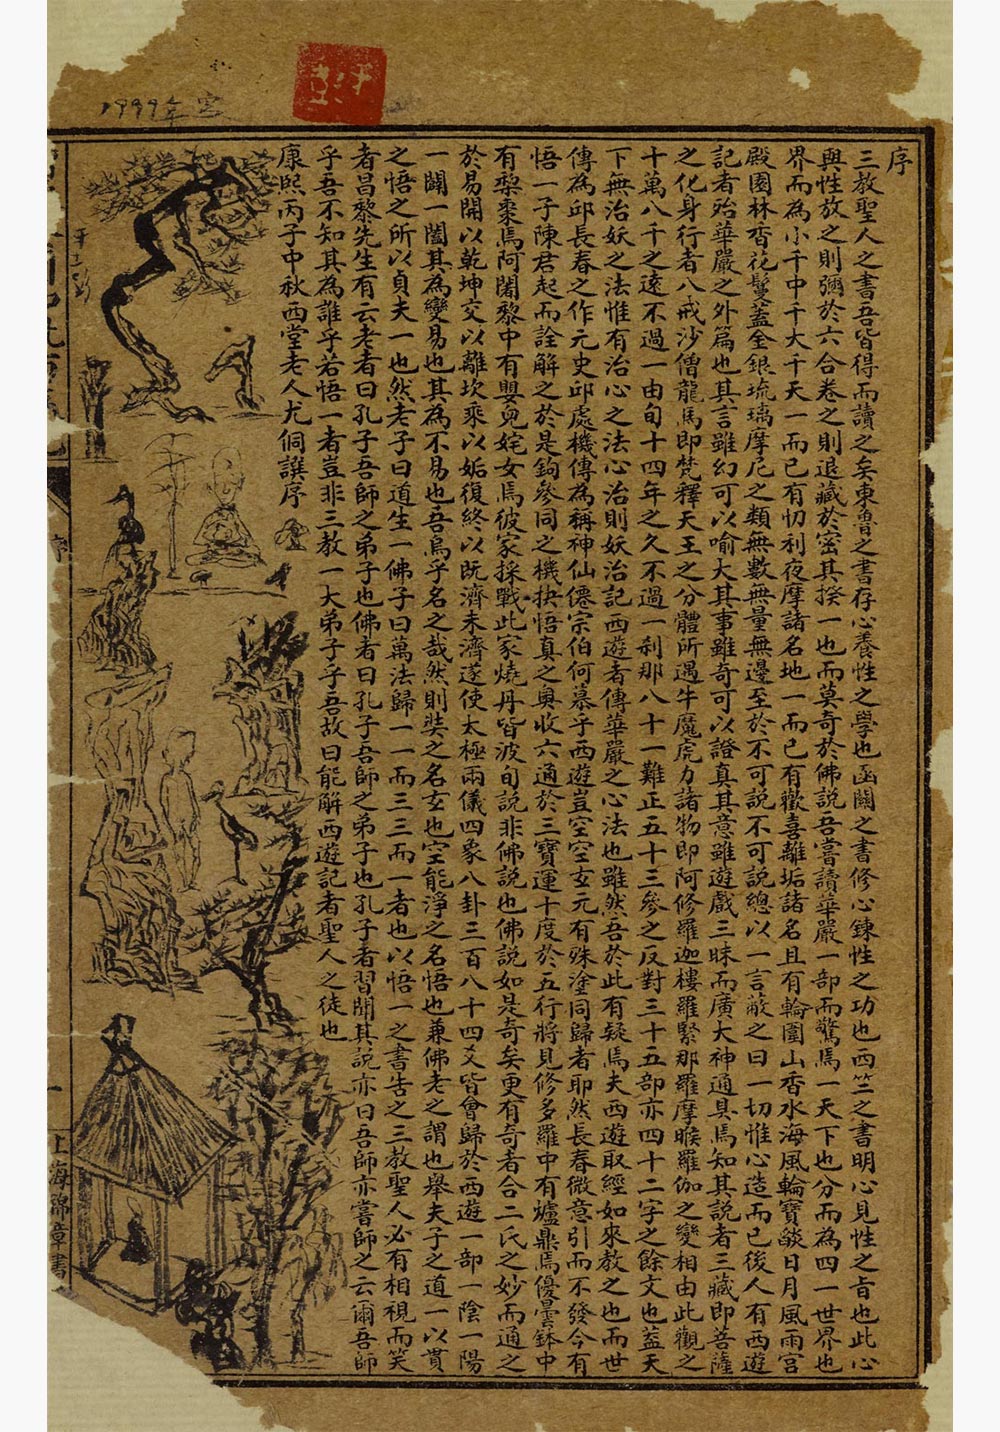 序
三教聖人之書吾皆得而讀之矣東魯之書存心養性之學也函關之書修心鍊性之功也西竺之書明心見性之旨也此心
與性放之則彌於六合卷之則退藏於密其揆一也而莫奇於佛說吾嘗讀華嚴一部而驚焉一天下也分而為四一世界也
界而為小千中千大千天一而已有忉利夜摩諸名地一而已有歡喜離垢諸名且有輪圍山香水海風輪寶燄日月風雨宮
殿園林香花鬘蓋金銀琉璃摩尼之類無數無量無邊至於不可說不可說總以一言蔽之曰一切惟心造而已後人有西遊
記者殆華嚴之外篇也其言雖幻可以喻大其事雖奇可以證真其意雖遊戲三昧而廣大神通具焉知其說者三藏即菩薩
之化身行者八戒沙僧龍馬即梵釋天王之分體所遇牛魔虎力諸物即阿修羅迦樓羅緊那羅摩睺羅伽之變相由此觀之
十萬八千之遠不過一由旬十四年之久不過一剎那八十一難正五十三參之反對三十五部亦四十二字之餘文也蓋天
下無治妖之法惟有治心之法心治則妖治記西遊者傳華嚴之心法也雖然吾於此有疑焉夫西遊取經如來教之也而世
傳為邱長春之作元史邱處機傳為稱神仙僊宗伯何慕乎西遊豈空空玄元有殊塗同歸者耶然長春微意引而不發今有
悟一子陳君起而詮解之於是鉤參同之機抉悟真之奧收六通於三寶運十度於五行將見修多羅中有爐鼎焉優曇鉢中
有棃棗焉阿闍黎中有嬰兒姹女焉彼家採戰此家燒丹皆波旬說非佛說也佛說如是奇矣更有奇者合二氏之妙而通之
於易開以乾坤交以離坎乘以姤復終以既濟未濟遂使太極兩儀四象八卦三百八十四爻皆會歸於西遊一部一陰一陽
一闢一闔其為變易也其為不易也吾烏乎名之哉然則奘之名玄也空能淨之名悟也兼佛老之謂也舉夫子之道一以貫
之悟之所以貞夫一也然老子曰道生一佛子曰萬法歸一一而三三而一者也以悟一之書告之三教聖人必有相視而笑
者昌黎先生有云老者曰孔子吾師之弟子也佛者曰孔子吾師之弟子也孔子者習聞其說亦曰吾師亦嘗師之云爾吾師
乎吾不知其為誰乎若悟一者豈非三教一大弟子乎吾故曰能解西遊記者聖人之徒也
康熙丙子中秋西堂老人尤侗譔序
序
一
上海錦章書
1999年